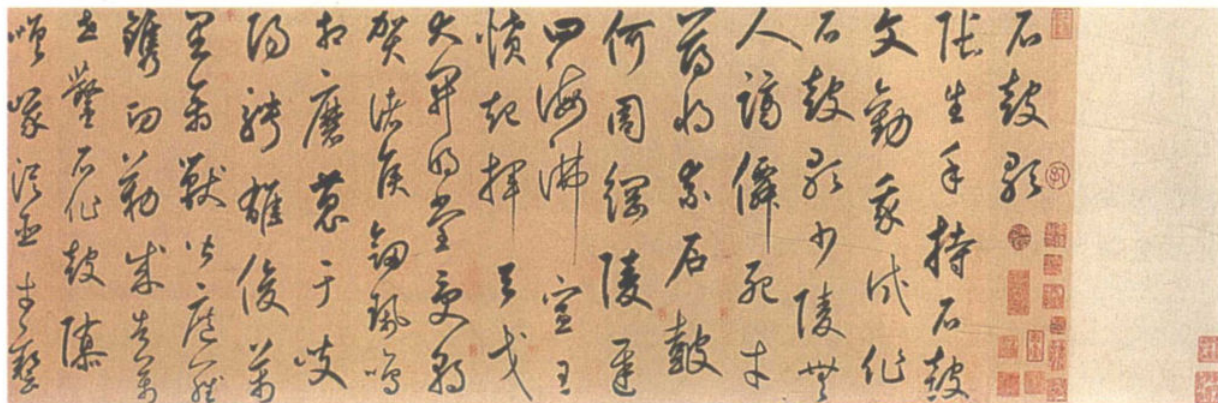 石鼓歌
張生手持石鼓
文勸我試作
石鼓歌少陵無
人謫僊死才
薄將奈石鼓
何周綱陵遲
四海沸宣王
憤起揮天戈
大開明堂受朝
賀諸侯劔珮鳴
相磨蒐于岐
陽騁雄俊萬
里禽獸皆遮羅
鐫功勒成告萬
世鑿石作鼓隳
嵯峨從臣才藝